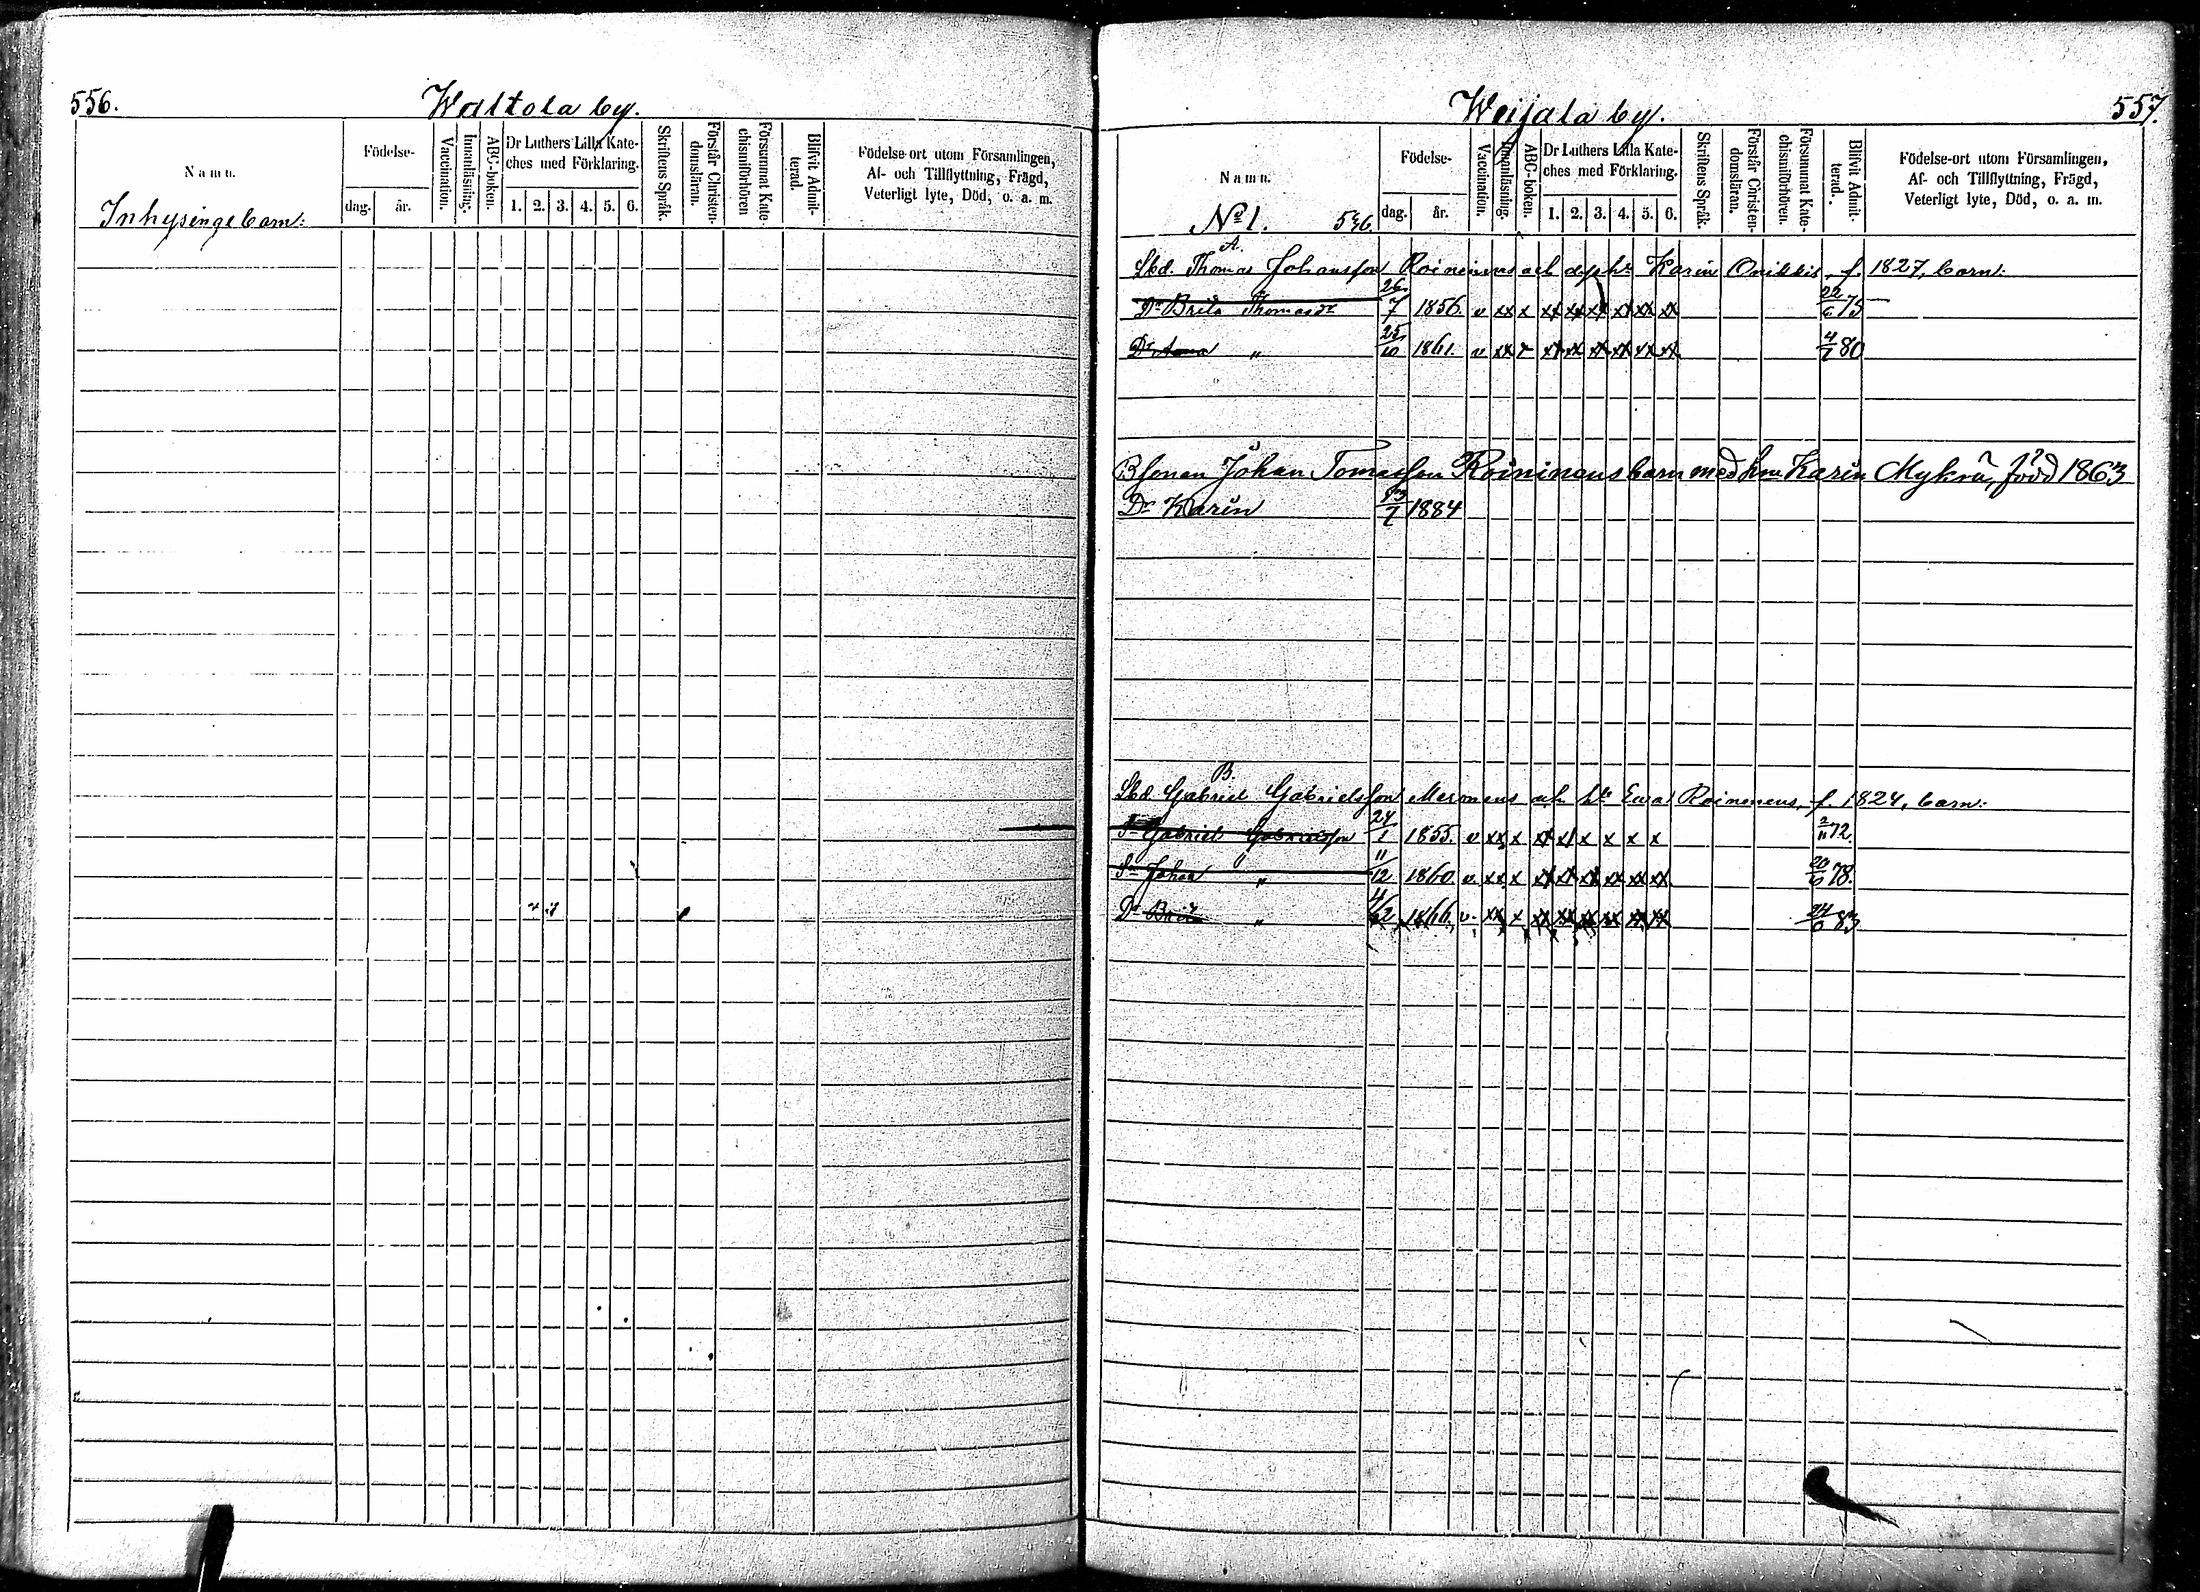 556.
Waltola by.
Namn.
Födelse-
dag.
år.
Vaccination.
Innanläsning.
ABC-boken.
Dr Luthers Lilla Kate-
ches med Förklaring.
1. 2. 3. 4. 5. 6.
Skriftens Språk.
Förstår Christen-
domsläran.
Försummat Kate-
chismiförhören
Blifvit Admit-
terad.
Födelse-ort utom Församlingen,
Af- och Tillflyttning, Frägd,
Veterligt lyte, Död, o. a. m.
Inhysinge barn:
557.
Weijala by.
Namn.
Födelse-
dag.
år.
Vaccination.
Innanläsning.
ABC-boken.
Dr Luthers Lilla Kate-
ches med Förklaring.
1. 2. 3. 4. 5. 6.
Skriftens Språk.
Förstår Christen-
domsläran.
Försummat Kate-
chismiförhören.
Blifvit Admit-
terad.
Födelse-ort utom Församlingen,
Af- och Tillflyttning, Frägd,
Veterligt lyte, Död, o. a. m.
No 1. 546.
A.
Lbd. Thomas Johansson Roineinens och Karin Onikkis, f. 1827, barn:
Dr Brita Thomasdr 26/7 1856. v xx x xx xx xx xx xx xx 22/6 75
Dr Anna " 25/10 1861. v xx x xx xx xx xx xx xx 4/7 80
B sonen Johan Tomasson Roininens barn med hu Karin Mykrä, född 1863
Dr Karin 1884
B.
Lbd. Gabriel Gabrielsson Meronens och hu Ewa Roinenens, f. 1824, barn:
Sn Gabriel Gabrielsson 24/1 1855. v xx x xx xx x x x x 2/11 72.
Sn Johan " 11/12 1860 v xx x xx xx xx xx xx xx 20/6 78.
Dr Brita " 4/12 1866, v xx x xx xx xx xx xx xx 24/6 83